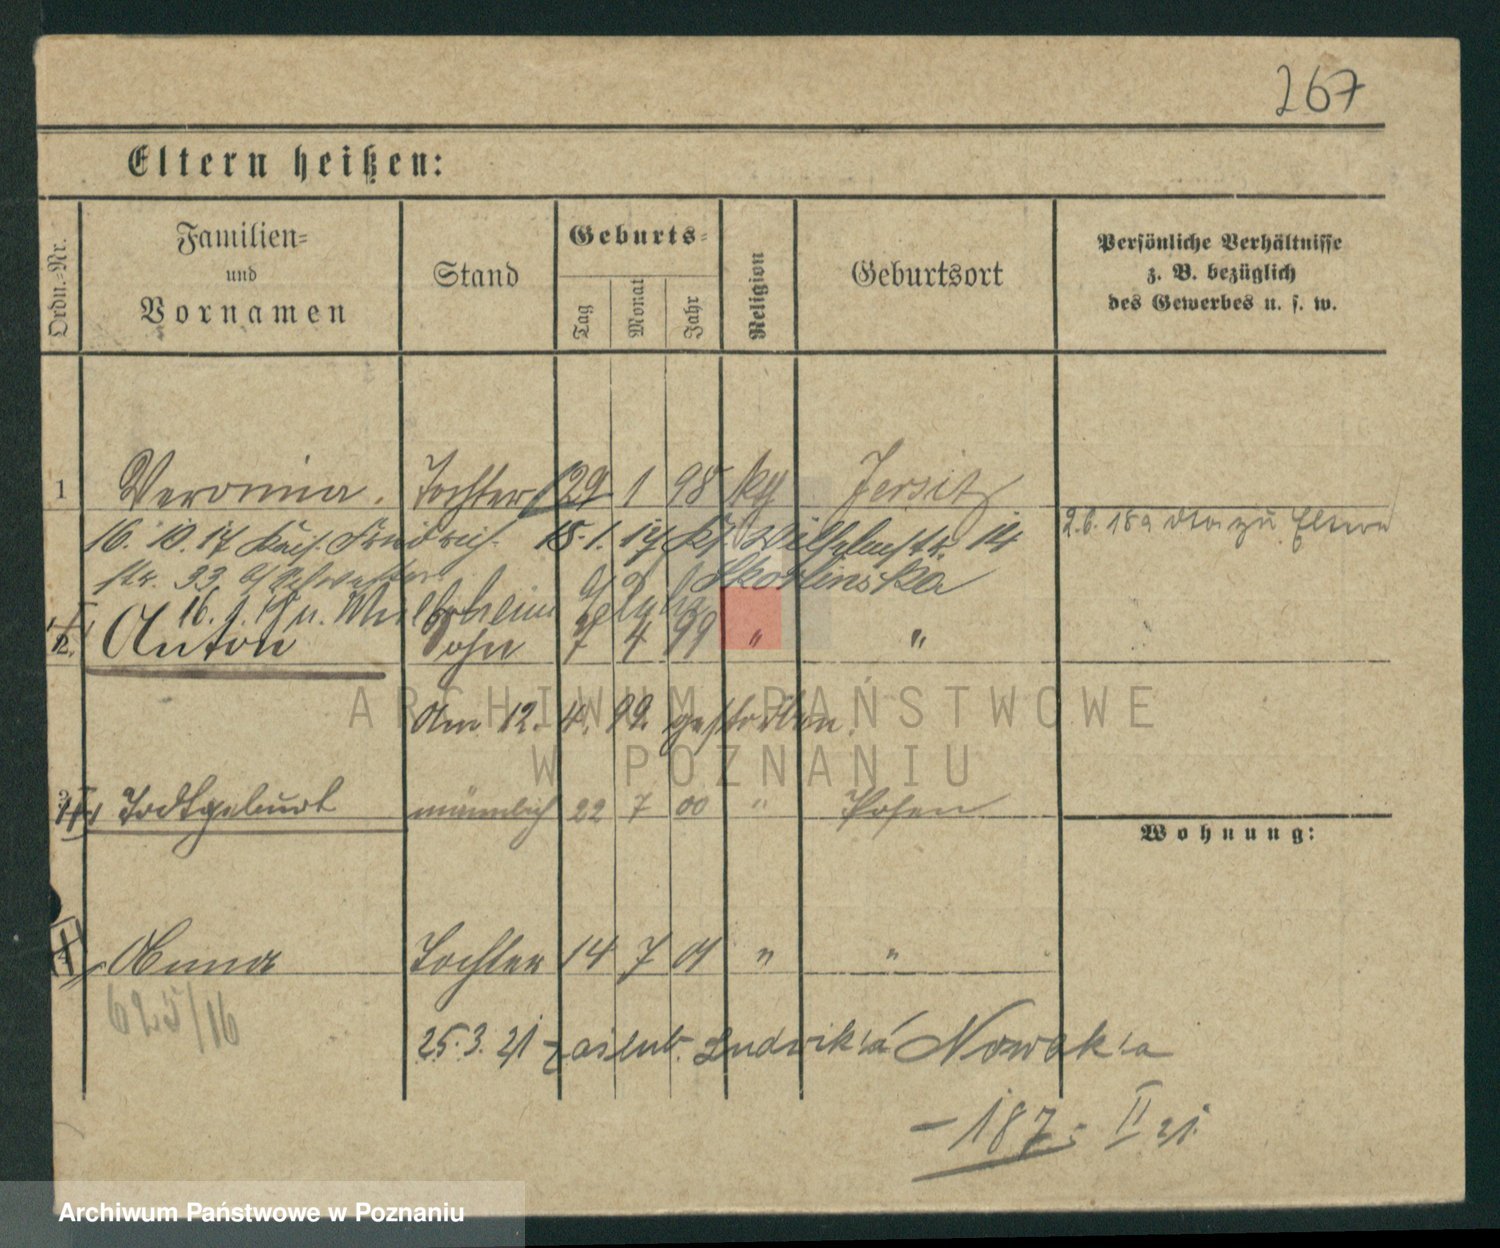 267
Eltern heißen:
Ordn.-Nr.
Familien-
und
Vornamen
Stand
Geburts-
Tag
Monat
Jahr
Religion
Geburtsort
Persönliche Verhältnisse
z. B. bezüglich
des Gewerbes u. s. w.
1 Veronica. Tochter 29 1 98 kg Jersitz
16. 10. 17 Kais. Friedrich 15. 1. Wilhelmstr. 14
str. 33
2. 6. zu Eltern
16. 1.
2. Anton Sohn 7 4 99 " "
Am 12. 4. 99. gestorben.
Todtgeburt männlich 22 7 00 " Posen
Wohnung:
Anna Tochter 14 7 01 " "
625/16
25. 3. 21 zaślub. Ludwika Nowaka
- 187 - II 21.
ARCHIWUM PAŃSTWOWE
W POZNANIU
Archiwum Państwowe w Poznaniu